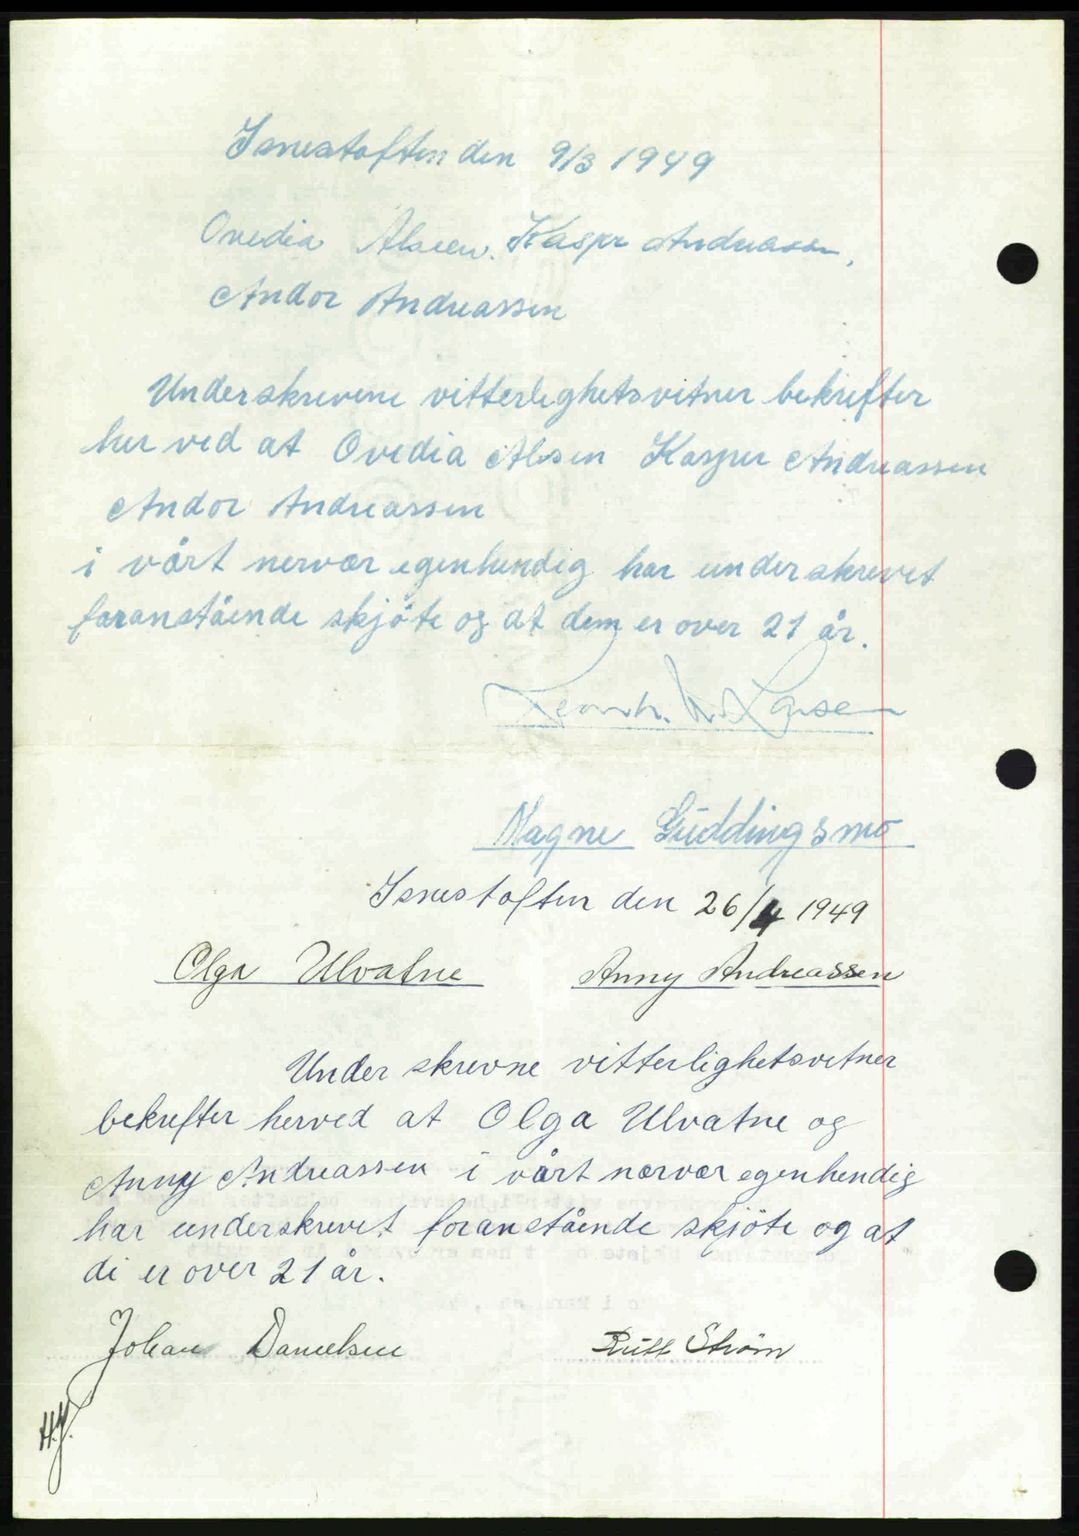 Isnestoften den 9/3 1949
Ovedia Alsen. Kasper Andreassen,
Andor Andreassen
Underskrevene vitterlighetsvitner bekrefter
her ved at Ovedia Alsen Kasper Andreassen
Andor Andreassen
i vårt nervær egenhendig har underskrevet
foranstående skjöte og at dem er over 21 år.
Larsen
Magne Guddingsmo
Isnestoften den 26/4 1949
Olga Ulvatne Anny Andreassen
Under skrevne vitterlighetsvitner
bekrefter herved at Olga Ulvatne og
Anny Andreassen i vårt nærvær egenhendig
har underskrevet foranstående skjöte og at
di er over 21 år.
Johan Danielsen Ruth Ström
H.J.